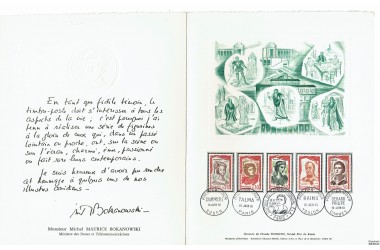 En tant que fidèle témoin, le
timbre-poste doit s'intéresser à tous les
aspects de la vie ; c'est pourquoi j'ai
tenu à réaliser une série de figurines
à la gloire de ceux qui, dans un passé
lointain ou proche, ont, sur la scène ou
sur l'écran, charmé, ému, passionné
ou fait rire leurs contemporains.
Je suis heureux d'avoir pu rendre
cet hommage à quelques uns de nos
illustres comédiens.
M Bokanowski
Monsieur Michel MAURICE BOKANOWSKI
Ministre des Postes et Télécommunications
TALMA
RAIMU
GÉRARD
PHILIPE
PARIS